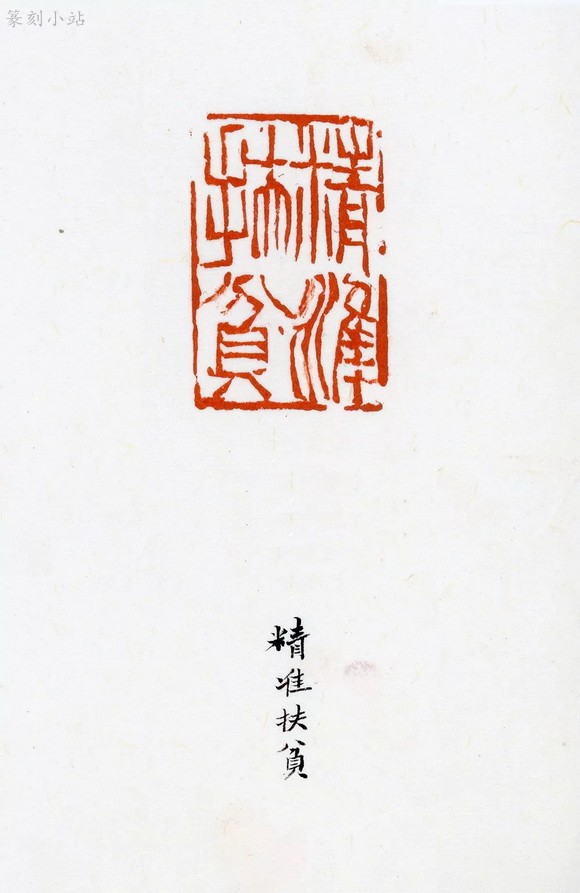 篆刻小站
精準
扶貧
精准扶貧